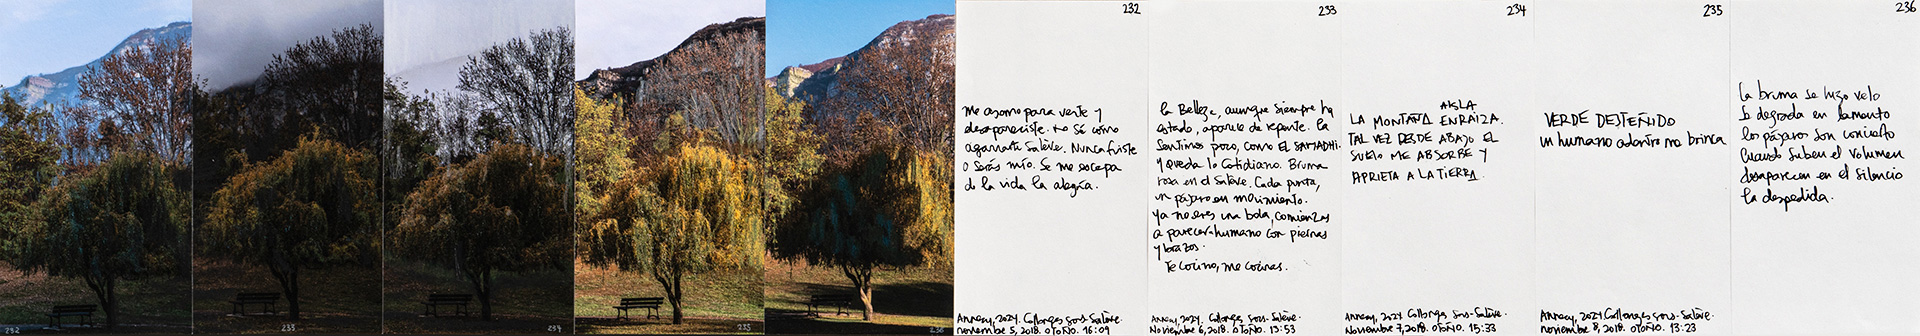 232
233
234
235
236
232
me asomo para verte y
desapareciste. no sé cómo
agarrarte Salève. Nunca fuiste
o serás mío. Se me escapa
de la vida la alegría.
Annecy, 2021. Collonges sous-Salève.
noviembre 5, 2018. OTOÑO. 16:09
233
la Belleza, aunque siempre ha
estado, aparece de repente. la
sentimos poco, como EL SAMADHI.
y queda lo cotidiano. Bruma
rosa en el Salève. Cada punta,
un pájaro en movimiento.
ya no eres una bola, comienzas
a parecer humano con piernas
y brazos.
Te cocino, me cocinas.
Annecy, 2021. Collonges, sous-Salève.
Noviembre 6, 2018. OTOÑO. 13:53
234
AISLA
LA MONTAÑA ENRAIZA.
TAL VEZ DESDE ABAJO EL
SUELO ME ABSORBE Y
APRIETA A LA TIERRA.
Annecy, 2021 Collonges sous-Salève.
Noviembre 7, 2018. OTOÑO. 15:33
235
VERDE DESTEÑIDO
un humano adentro no brinca
Annecy, 2021. Collonges sous-Salève.
noviembre 8, 2018. OTOÑO. 13:23
236
la bruma se hizo velo
la dejada en lamento
los pájaros son concierto
Cuando suben el volumen
desaparecen en el silencio
la despedida.